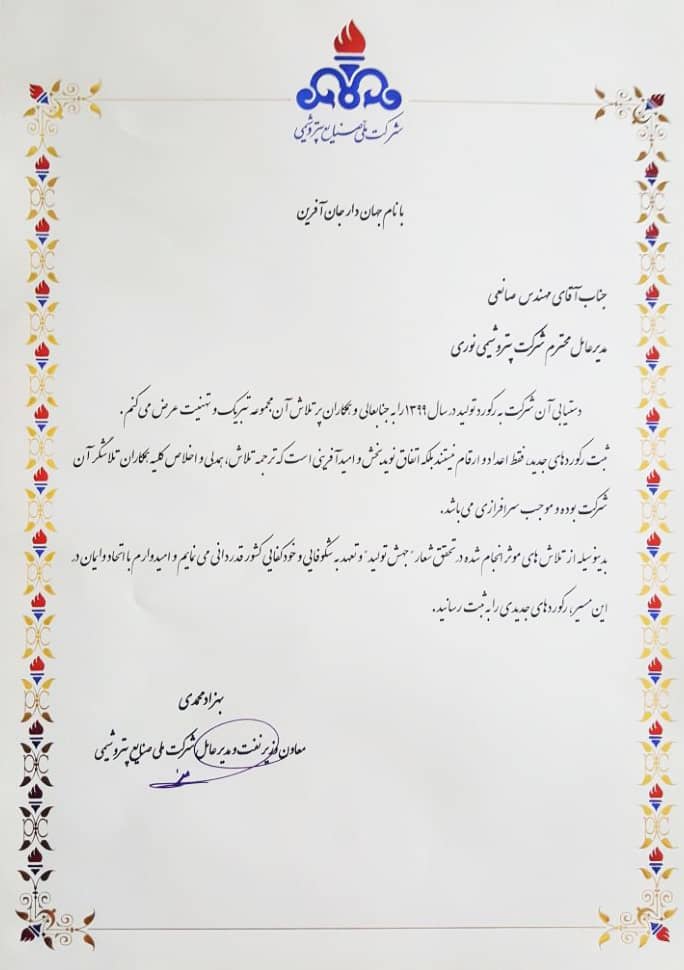 شرکت ملی صنایع پتروشیمی
با نام جهان دار جان آفرین
جناب آقای مهندس صانعی
مدیرعامل محترم شرکت پتروشیمی نوری
دستیابی آن شرکت به رکورد تولید در سال ۱۳۹۹ را به جنابعالی و همکاران پر تلاش آن مجموعه تبریک و تهنیت عرض می کنم.
ثبت رکوردهای جدید، فقط اعداد و ارقام نیستند بلکه اتفاق نویدبخش و امیدآفرینی است که ترجمه تلاش، همدلی و اخلاص کلیه همکاران تلاشگر آن
شرکت بوده و موجب سرافرازی می باشد.
بدینوسیله از تلاش های موثر انجام شده در تحقق شعار "جهش تولید" و تعهد به شکوفایی و خودکفایی کشور قدردانی می نمایم و امیدوارم با اتحاد و ایمان در
این مسیر، رکوردهای جدیدی را به ثبت رسانید.
بهزاد محمدی
معاون وزیر نفت و مدیرعامل شرکت ملی صنایع پتروشیمی